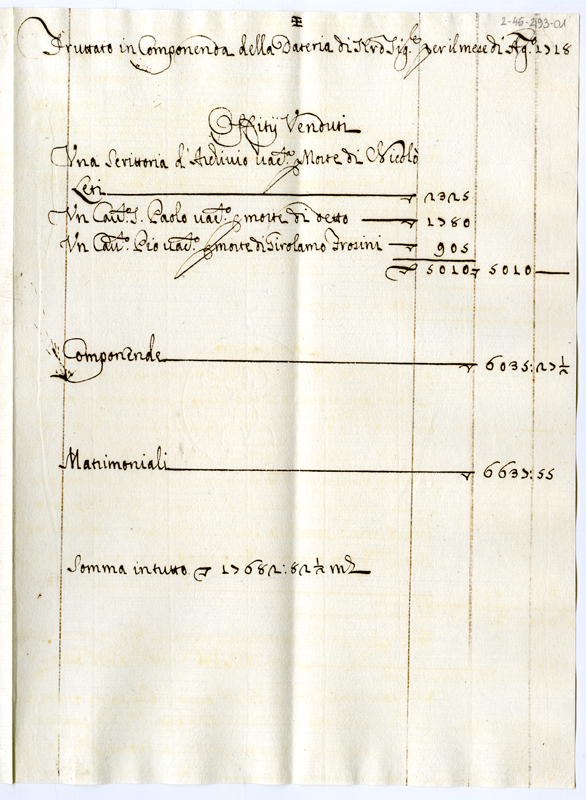 2-46-293-01
Fruttato in Componenda della Dateria di N'ro Sig.re per il mese di Ag.o 1718
Offitij Venduti
Una Scrittoria d'Archivio vac.ta p morte di Nicolò
Leti 2325
Un Cau.to S. Paolo vac.to p morte di detto 1780
Un Cau.to Pio vac.to p morte di Girolamo Frosini 905
5010 5010
Componende 6035:27½
Matrimoniali 6637:55
Somma in tutto 17682:82½ m.ta